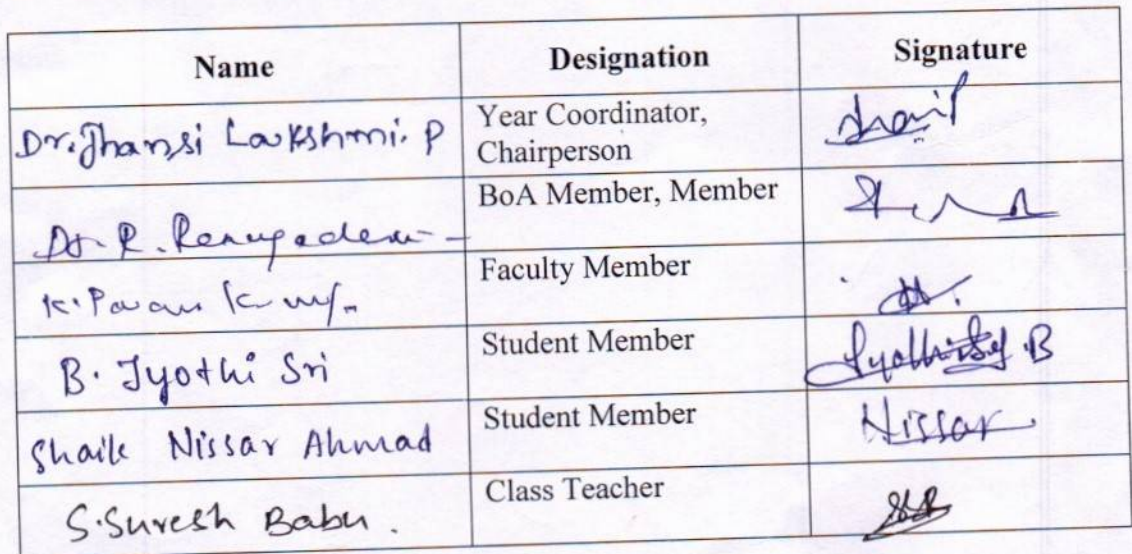 Name Designation Signature
Dr. Jhansi Lakshmi. P Year Coordinator,
Chairperson
Dr. R. Renugadevi BoA Member, Member
K. Pavan Faculty Member
B. Jyothi Sri Student Member Jyothi Sri .B
Shaik Nissar Ahmad Student Member Nissar
S. Suresh Babu. Class Teacher